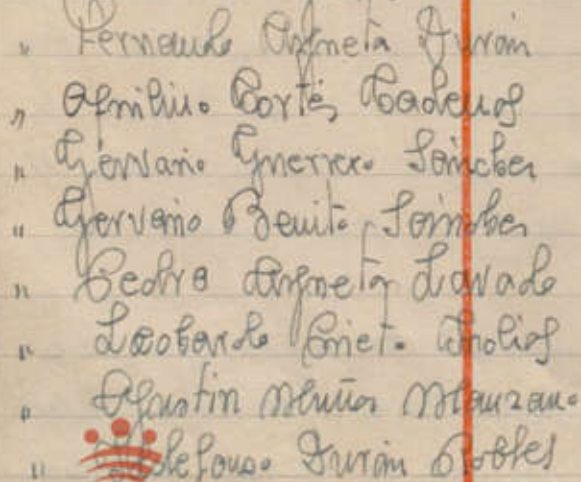 " Fernando Argueta Durán
" Emilio Cortés Cadenas
" Gervasio Guerrero Sánches
" Gervasio Benito Sánches
" Pedro Argueta Lavado
" Leobardo Prieto
" Agustin Muños Manzano
" Ildefonso Durán Robles